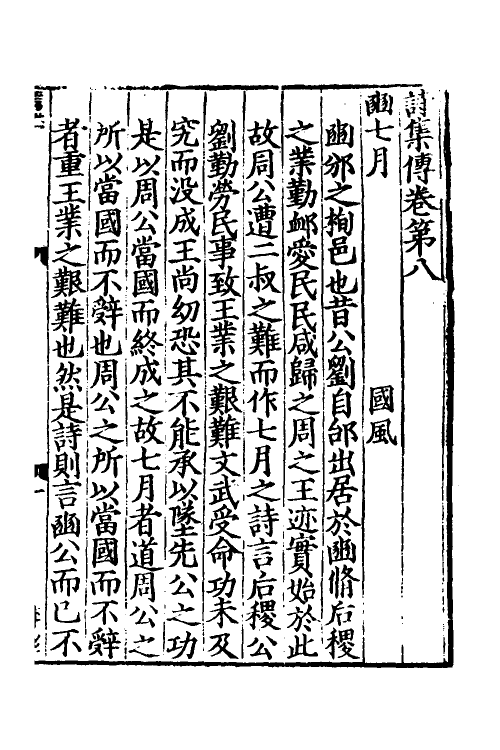 詩集傳卷第八
豳七月　國風
豳邠之栒邑也昔公劉自邰出居於豳脩后稷
之業勤䘏愛民民咸歸之周之王迹實始於此
故周公遭二叔之難而作七月之詩言后稷公
劉勤勞民事致王業之艱難文武受命功未及
究而没成王尚幼恐其不能承以墜先公之功
是以周公當國而終成之故七月者道周公之
所以當國而不辤也周公之所以當國而不辤
者重王業之艱難也然是詩則言豳公而已不